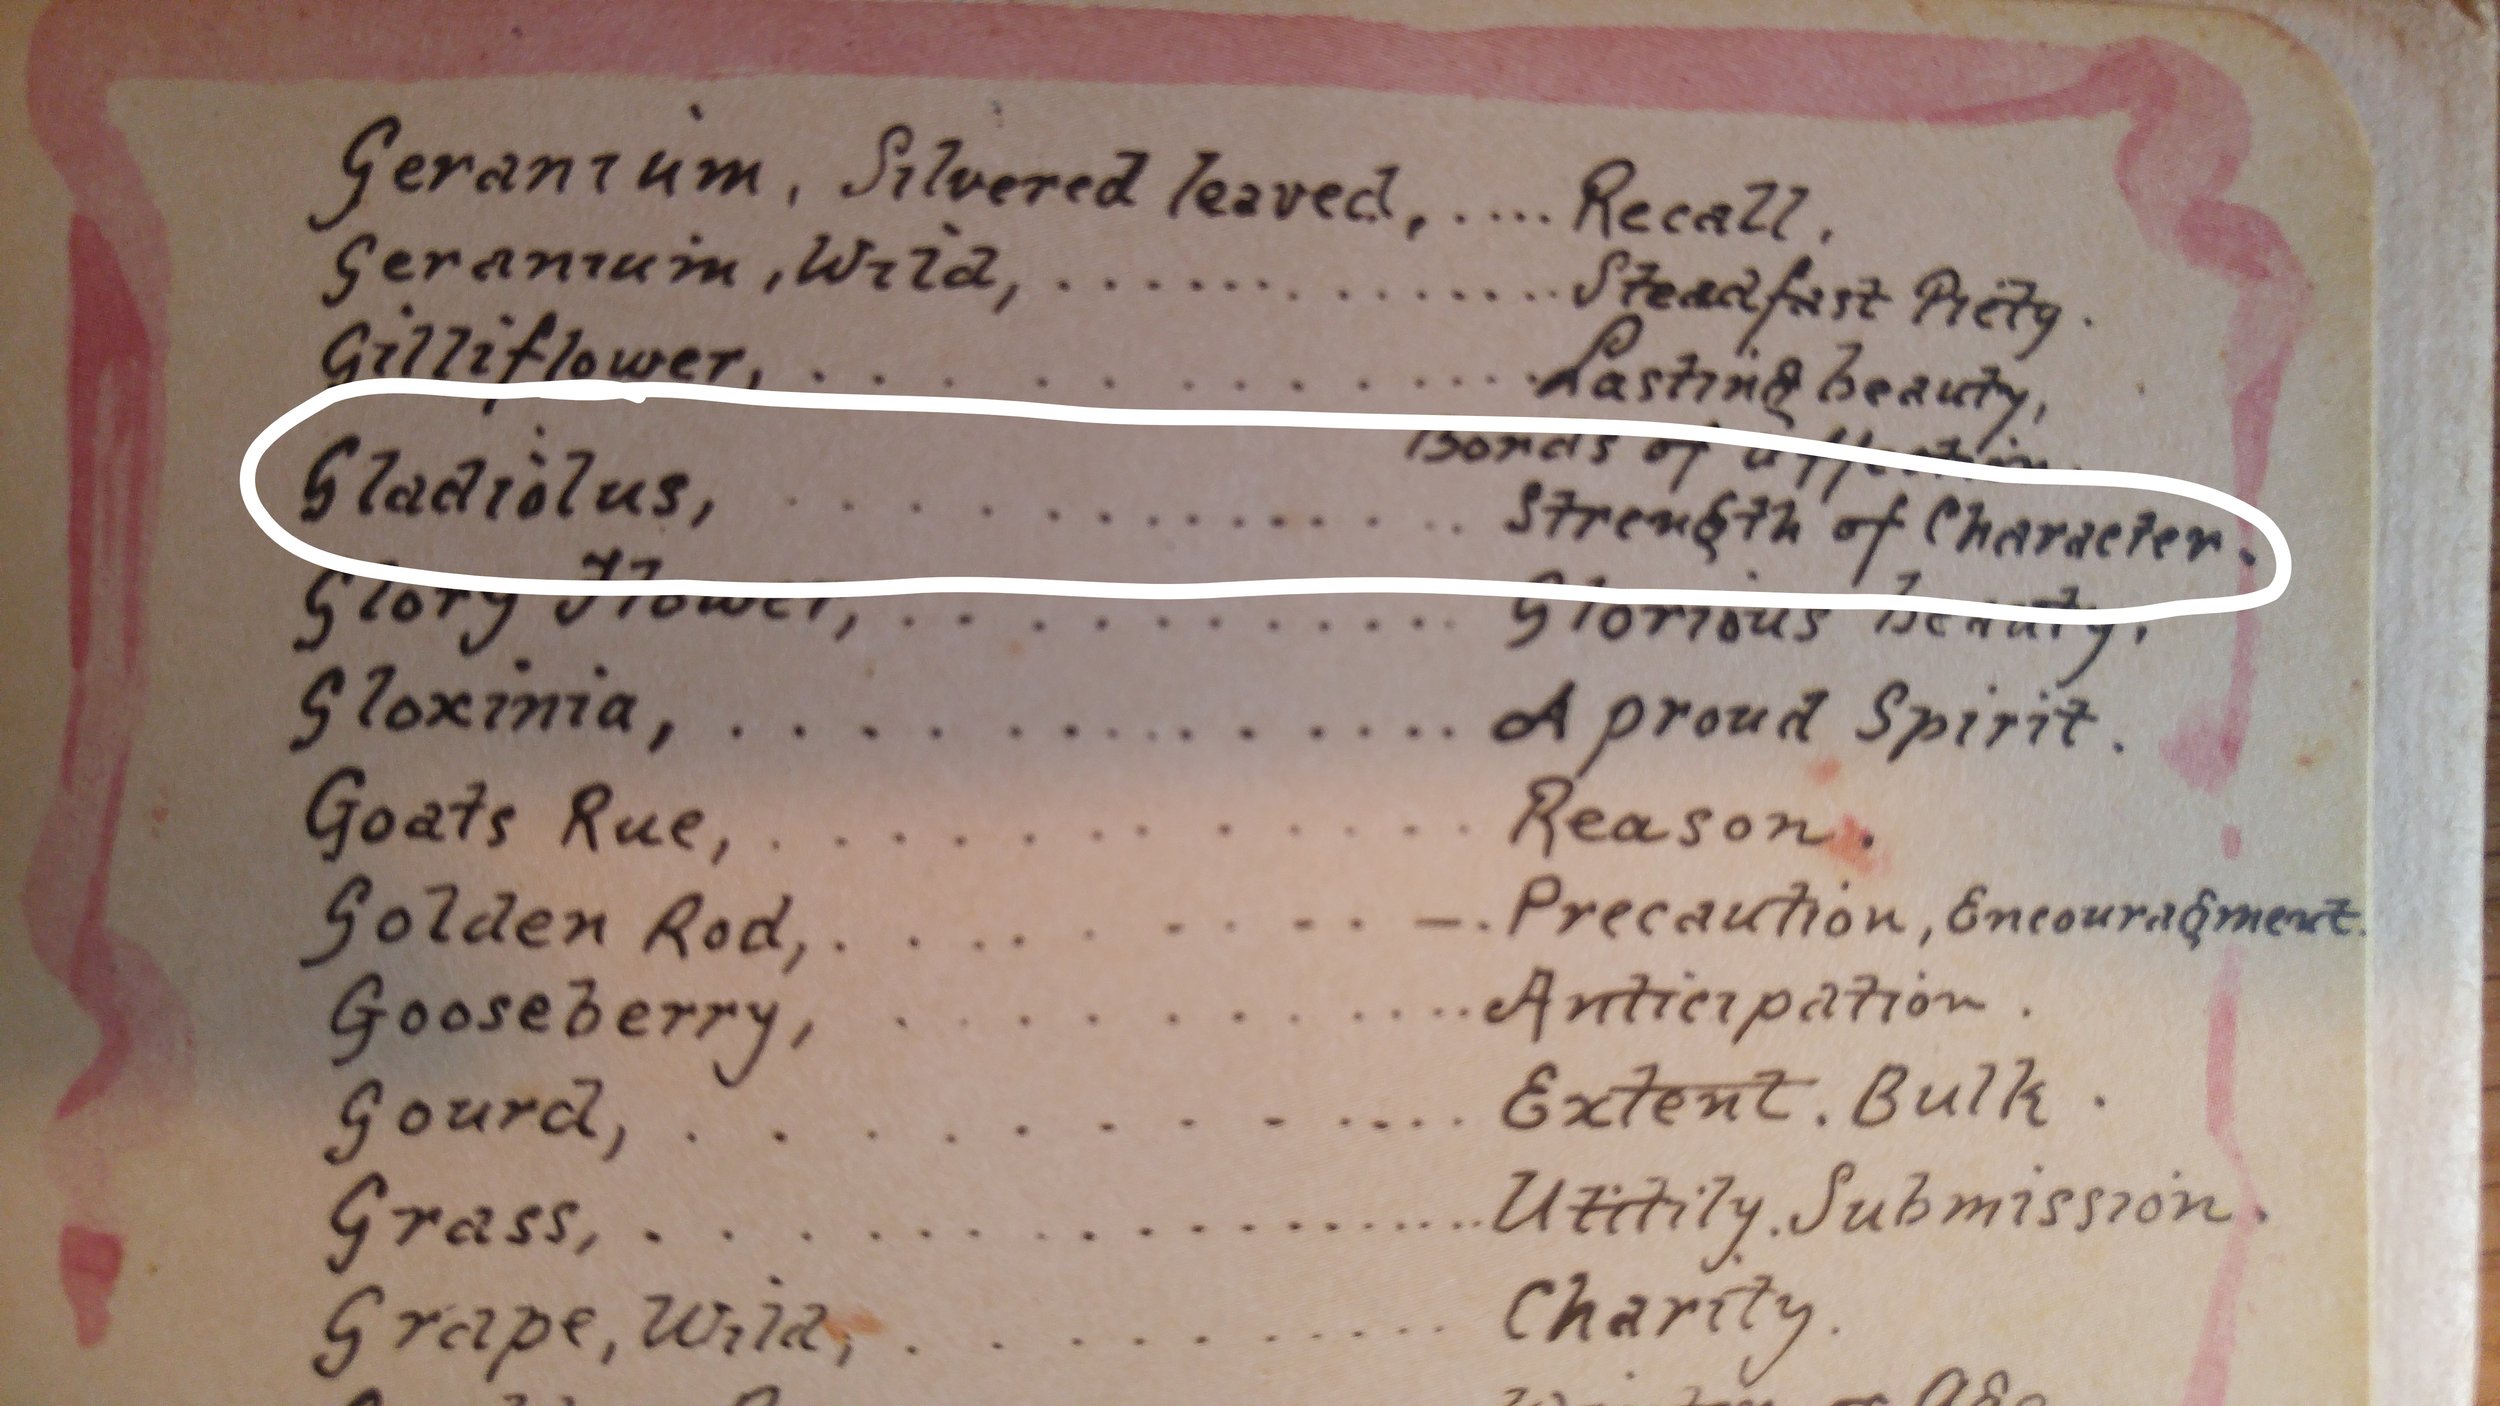 Geranium, Silvered leaved, ..... Recall.
Geranium, Wild, ............... Steadfast Piety.
Gilliflower, ............... Lasting beauty,
Bonds of affection.
Gladiolus, ............... Strength of Character.
Glory Flower, ............ Glorious beauty.
Gloxinia, ............... A proud Spirit.
Goats Rue, ............ Reason.
Golden Rod, ............ Precaution, Encouragment.
Gooseberry, ............ Anticipation.
Gourd, ............ Extent. Bulk.
Grass, ............... Utitily. Submission.
Grape, Wild, ......... Charity.